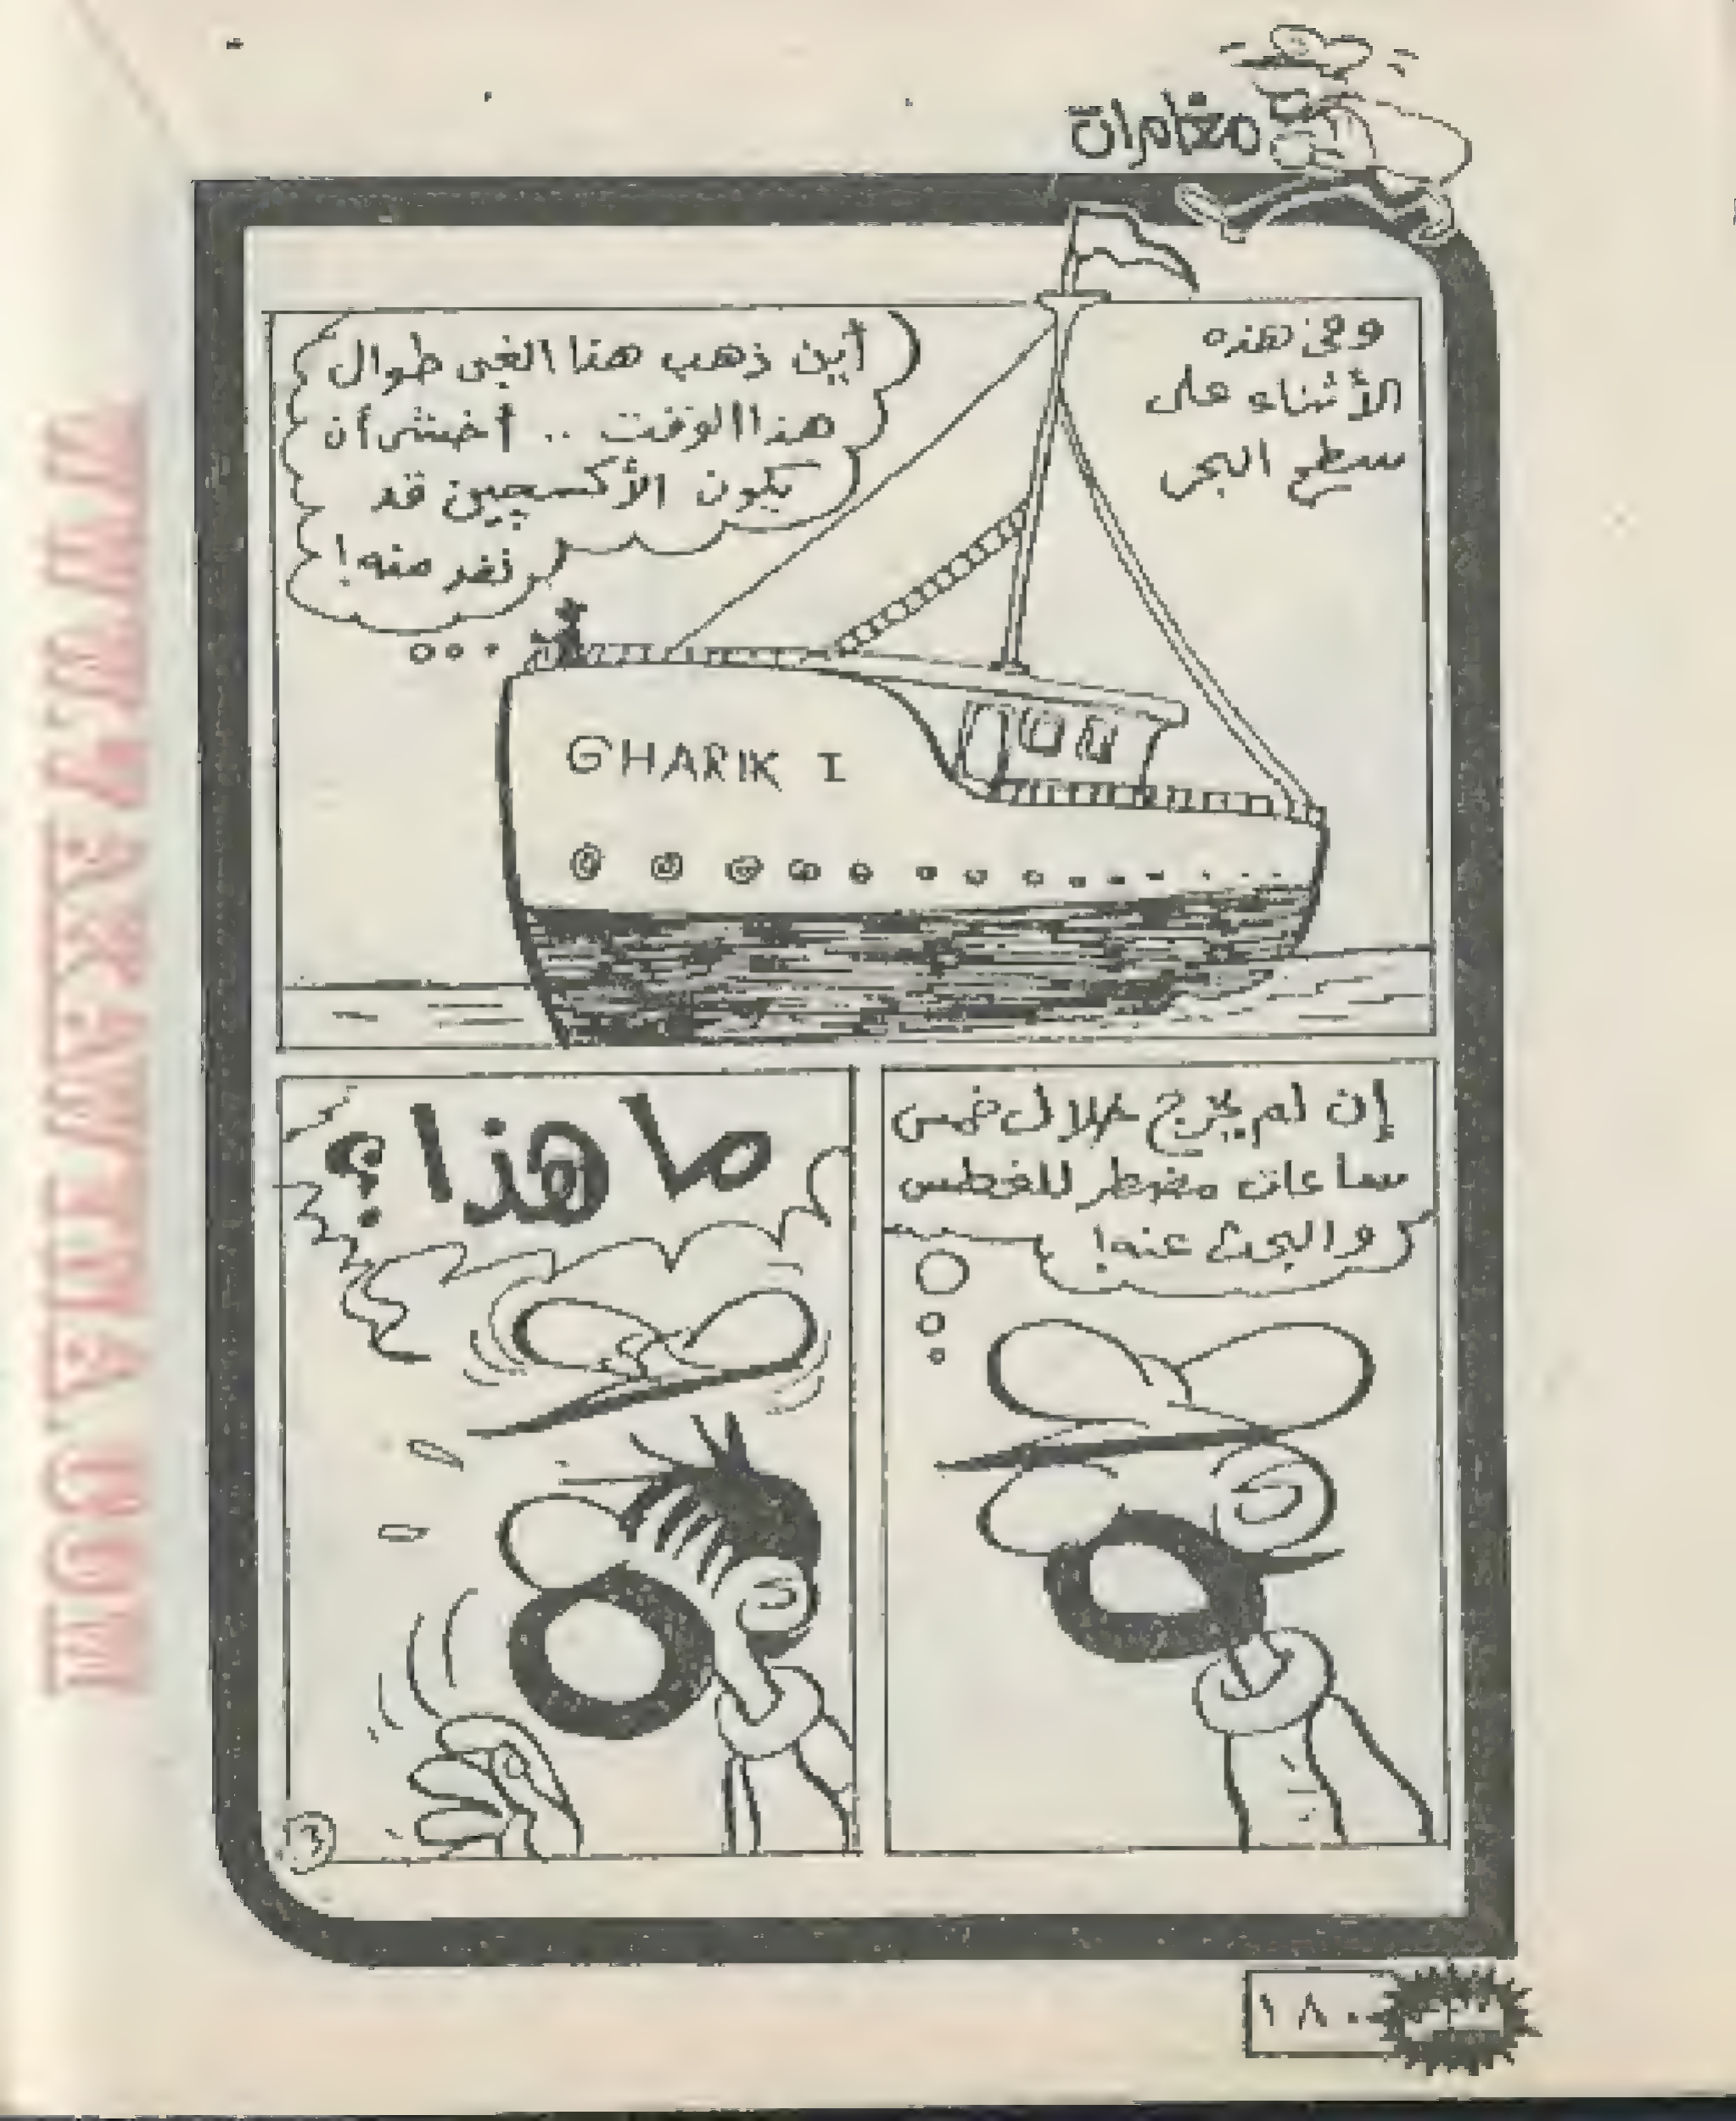 مغامرات
وفى هذه
الأثناء على
سطح البحر
أين ذهب هذا الغبى طوال
هذا الوقت .. أخشى أن
يكون الأكسجين قد
نفد منه!
GHARIK I
إن لم يخرج خلال خمس
ساعات مضطر للغطس
والبحث عنه!
ما هذا؟
3
١٨٠